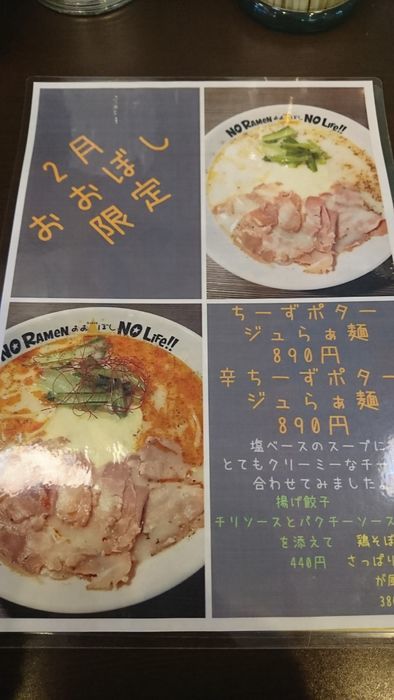 2月
おおぼし
限定
NO RAMEN おおぼし NO LIFE!!
NO RAMEN おおぼし NO LIFE!!
ちーずポター
ジュらぁ麺
890円
辛ちーずポター
ジュらぁ麺
890円
塩ベースのスープに
とてもクリーミーなチ
合わせてみました
揚げ餃子
チリソースとパクチーソース
を添えて
440円
鶏そぼ
さっぱり
が
380